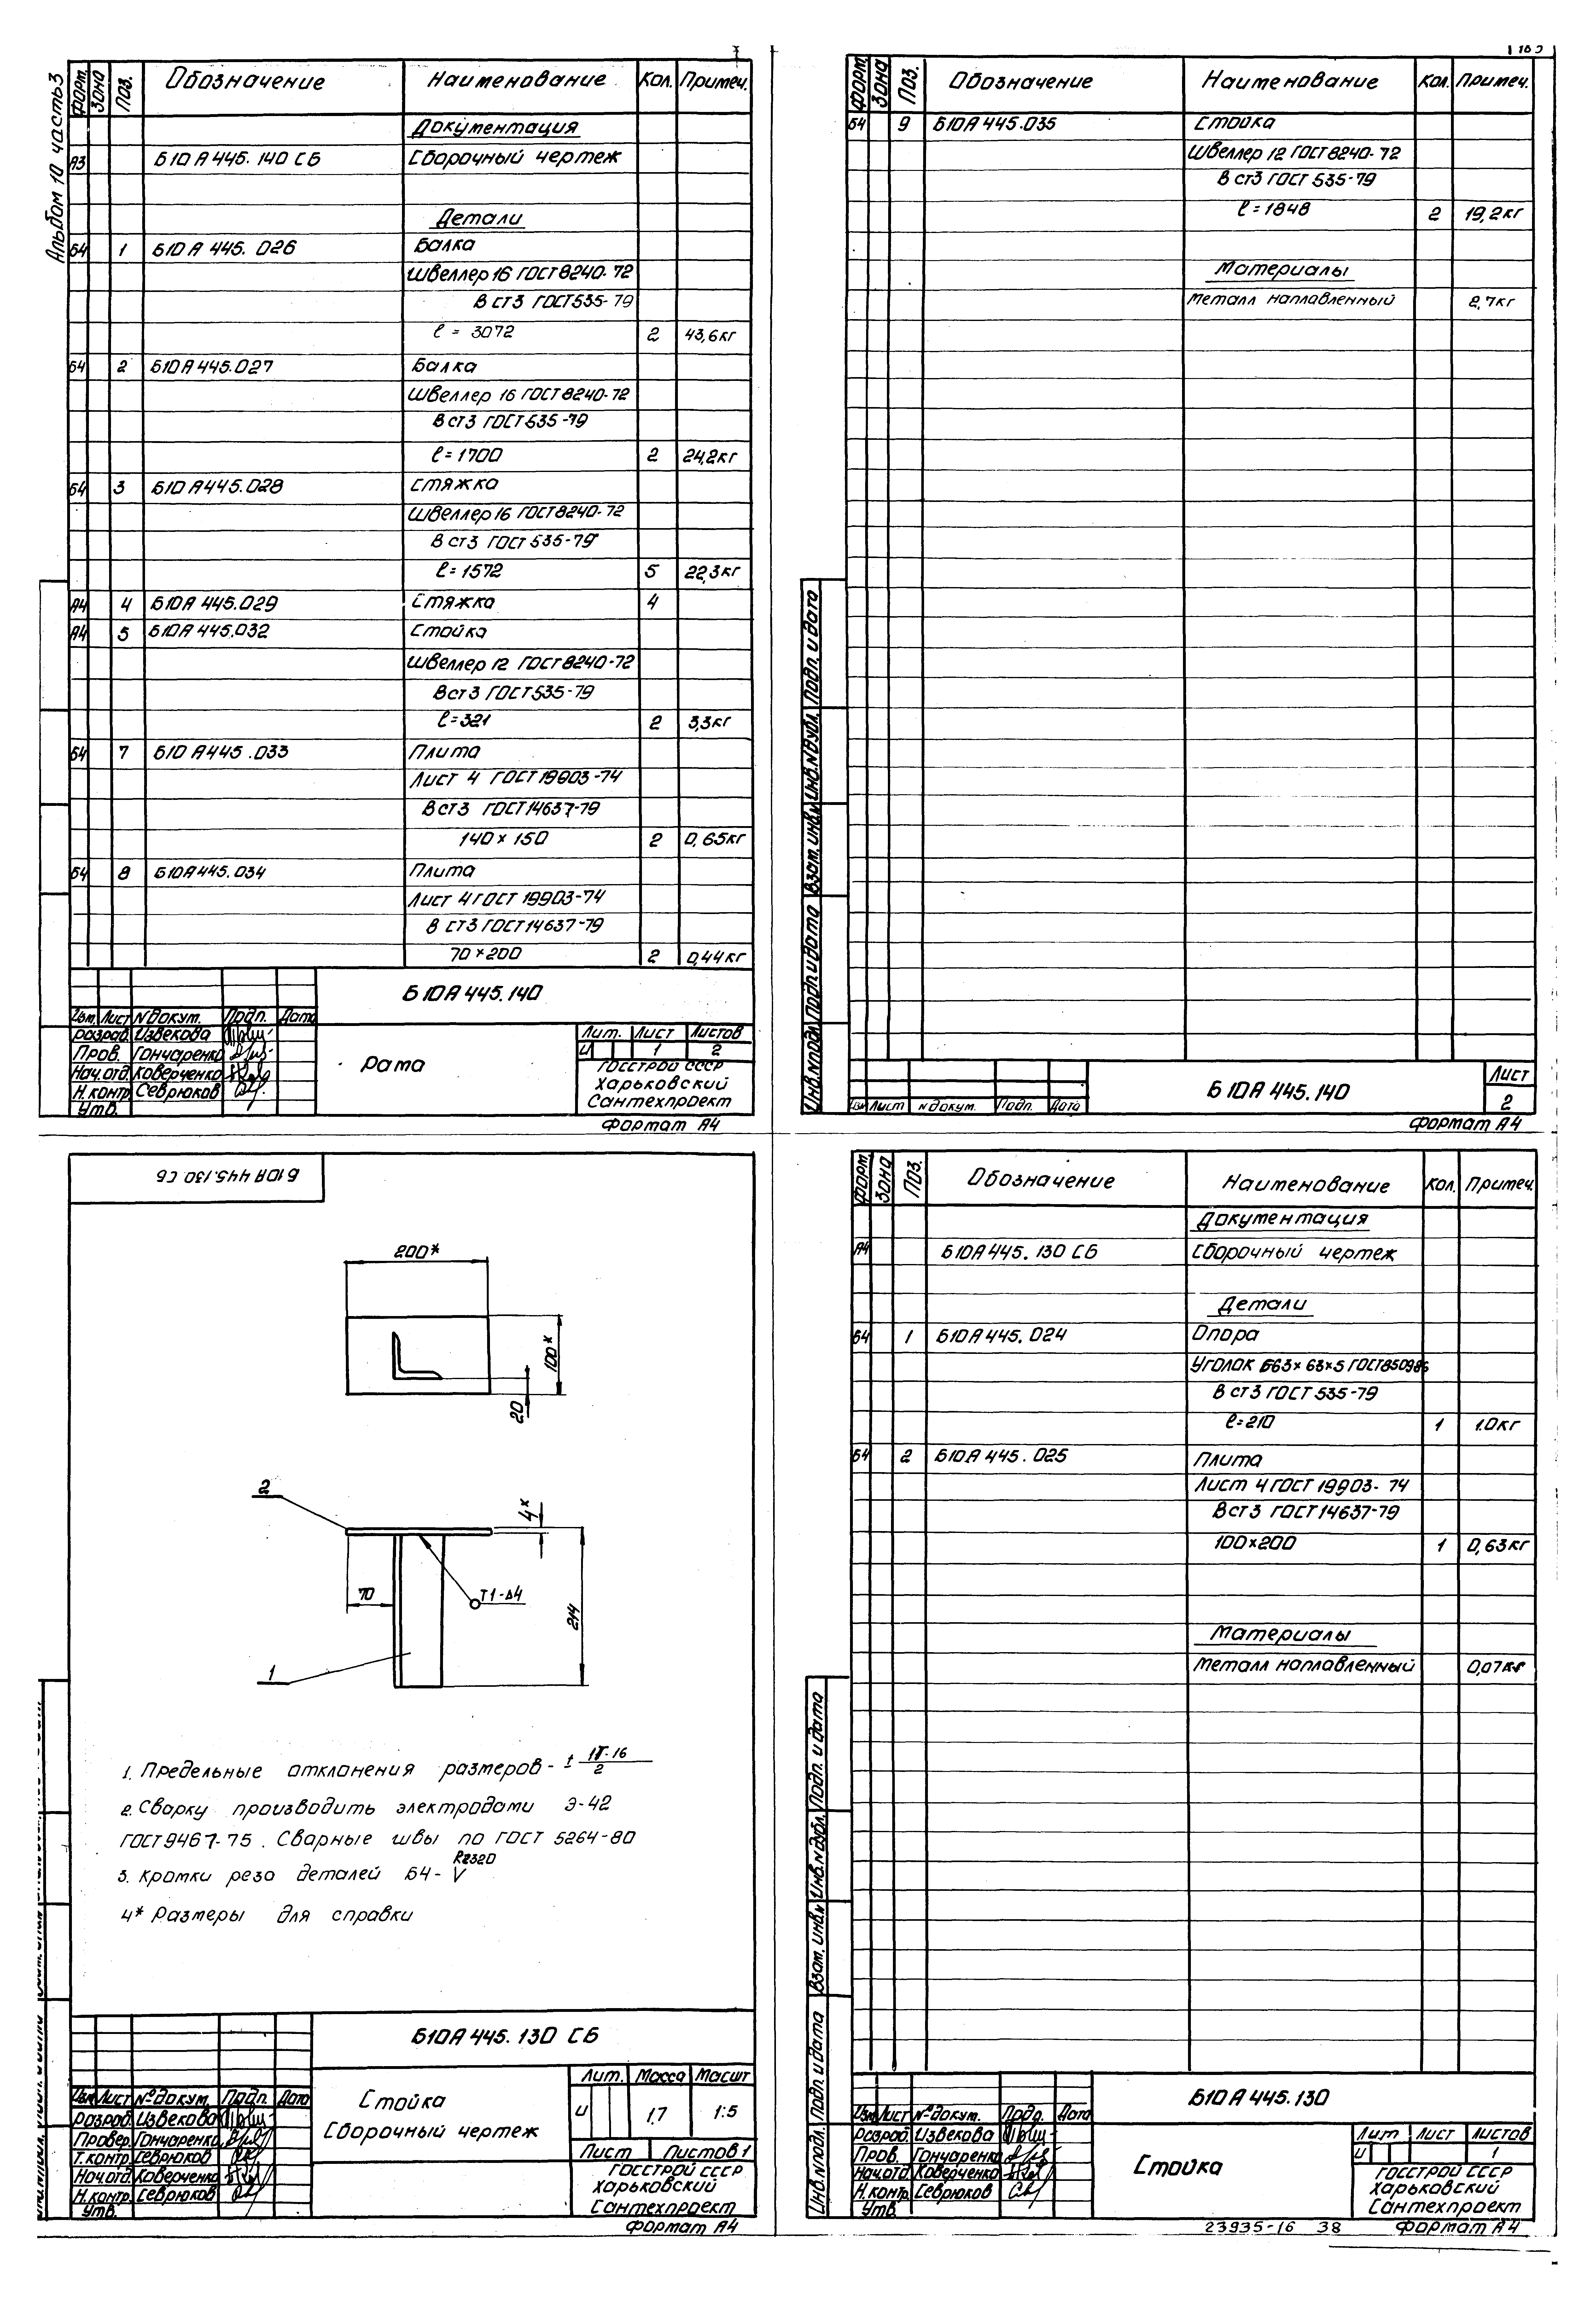 Альбом 10 часть 3
Форм. Зона Поз. Обозначение Наименование Кол. Примеч.
Документация
А3 Б10А 445.140 СБ Сборочный чертеж
Детали
Б4 1 Б10А 445.026 Балка
Швеллер 16 ГОСТ 8240-72
В ст3 ГОСТ 535-79
ℓ = 3072 2 43,6кг
Б4 2 Б10А 445.027 Балка
Швеллер 16 ГОСТ 8240-72
В ст3 ГОСТ 535-79
ℓ = 1700 2 24,2кг
Б4 3 Б10А 445.028 Стяжка
Швеллер 16 ГОСТ 8240-72
В ст3 ГОСТ 535-79
ℓ = 1572 5 22,3кг
А4 4 Б10А 445.029 Стяжка 4
А4 5 Б10А 445.032 Стойка
Швеллер 12 ГОСТ 8240-72
В ст3 ГОСТ 535-79
ℓ = 321 2 3,3кг
Б4 7 Б10А 445.033 Плита
Лист 4 ГОСТ 19903-74
В ст3 ГОСТ 14637-79
140 × 150 2 0,65кг
Б4 8 Б10А 445.034 Плита
Лист 4 ГОСТ 19903-74
В ст3 ГОСТ 14637-79
70 × 200 2 0,44кг
Б10А 445.140
Изм. Лист N докум. Подп. Дата
Разраб. Извекова
Пров. Гончаренко
Нач.отд Коверченко
Н.контр Севрюков
Утв.
Рама
Лит. Лист Листов
И 1 2
ГОССТРОЙ СССР
Харьковский
Сантехпроект
Формат А4
Форм. Зона Поз. Обозначение Наименование Кол. Примеч.
Б4 9 Б10А 445.035 Стойка
Швеллер 12 ГОСТ 8240-72
В ст3 ГОСТ 535-79
ℓ = 1848 2 19,2кг
Материалы
Металл наплавленный 2,7кг
Инв.N подл. Подп. и дата Взам. инв.N Инв.N дубл. Подп. и дата
Изм Лист N докум. Подп. Дата
Б10А 445.140
Лист
2
Формат А4
Б10А 445.130 СБ
200*
100*
20
2
4*
70
Т1-Δ4
214
1
1. Предельные отклонения размеров - ± IT-16/2
2. Сварку производить электродами Э-42
ГОСТ 9467-75. Сварные швы по ГОСТ 5264-80
3. Кромки реза деталей Б4- Rz320
4* Размеры для справки
Б10А 445.130 СБ
Изм Лист N° докум. Подп. Дата
Разраб. Извекова
Провер. Гончаренко
Т.контр. Севрюков
Нач.отд Коверченко
Н.контр. Севрюков
Утв.
Стойка
Сборочный чертеж
Лит. Масса Масшт
И 1,7 1:5
Лист Листов 1
ГОССТРОЙ СССР
Харьковский
Сантехпроект
Формат А4
Форм. Зона Поз. Обозначение Наименование Кол. Примеч.
Документация
А4 Б10А 445.130 СБ Сборочный чертеж
Детали
Б4 1 Б10А 445.024 Опора
Уголок Б63×63×5 ГОСТ 8509-86
В ст3 ГОСТ 535-79
ℓ=210 1 1.0кг
Б4 2 Б10А 445.025 Плита
Лист 4 ГОСТ 19903-74
В ст3 ГОСТ 14637-79
100×200 1 0,63кг
Материалы
Металл наплавленный 0,07кг
Инв.N подл. Подп. и дата Взам. инв.N Инв.N дубл. Подп. и дата
Б10А 445.130
Изм Лист N° докум. Подп. Дата
Разраб. Извекова
Пров. Гончаренко
Нач.отд Коверченко
Н.контр. Севрюков
Утв.
Стойка
Лит Лист Листов
И 1
ГОССТРОЙ СССР
Харьковский
Сантехпроект
23935-16 38 Формат А4